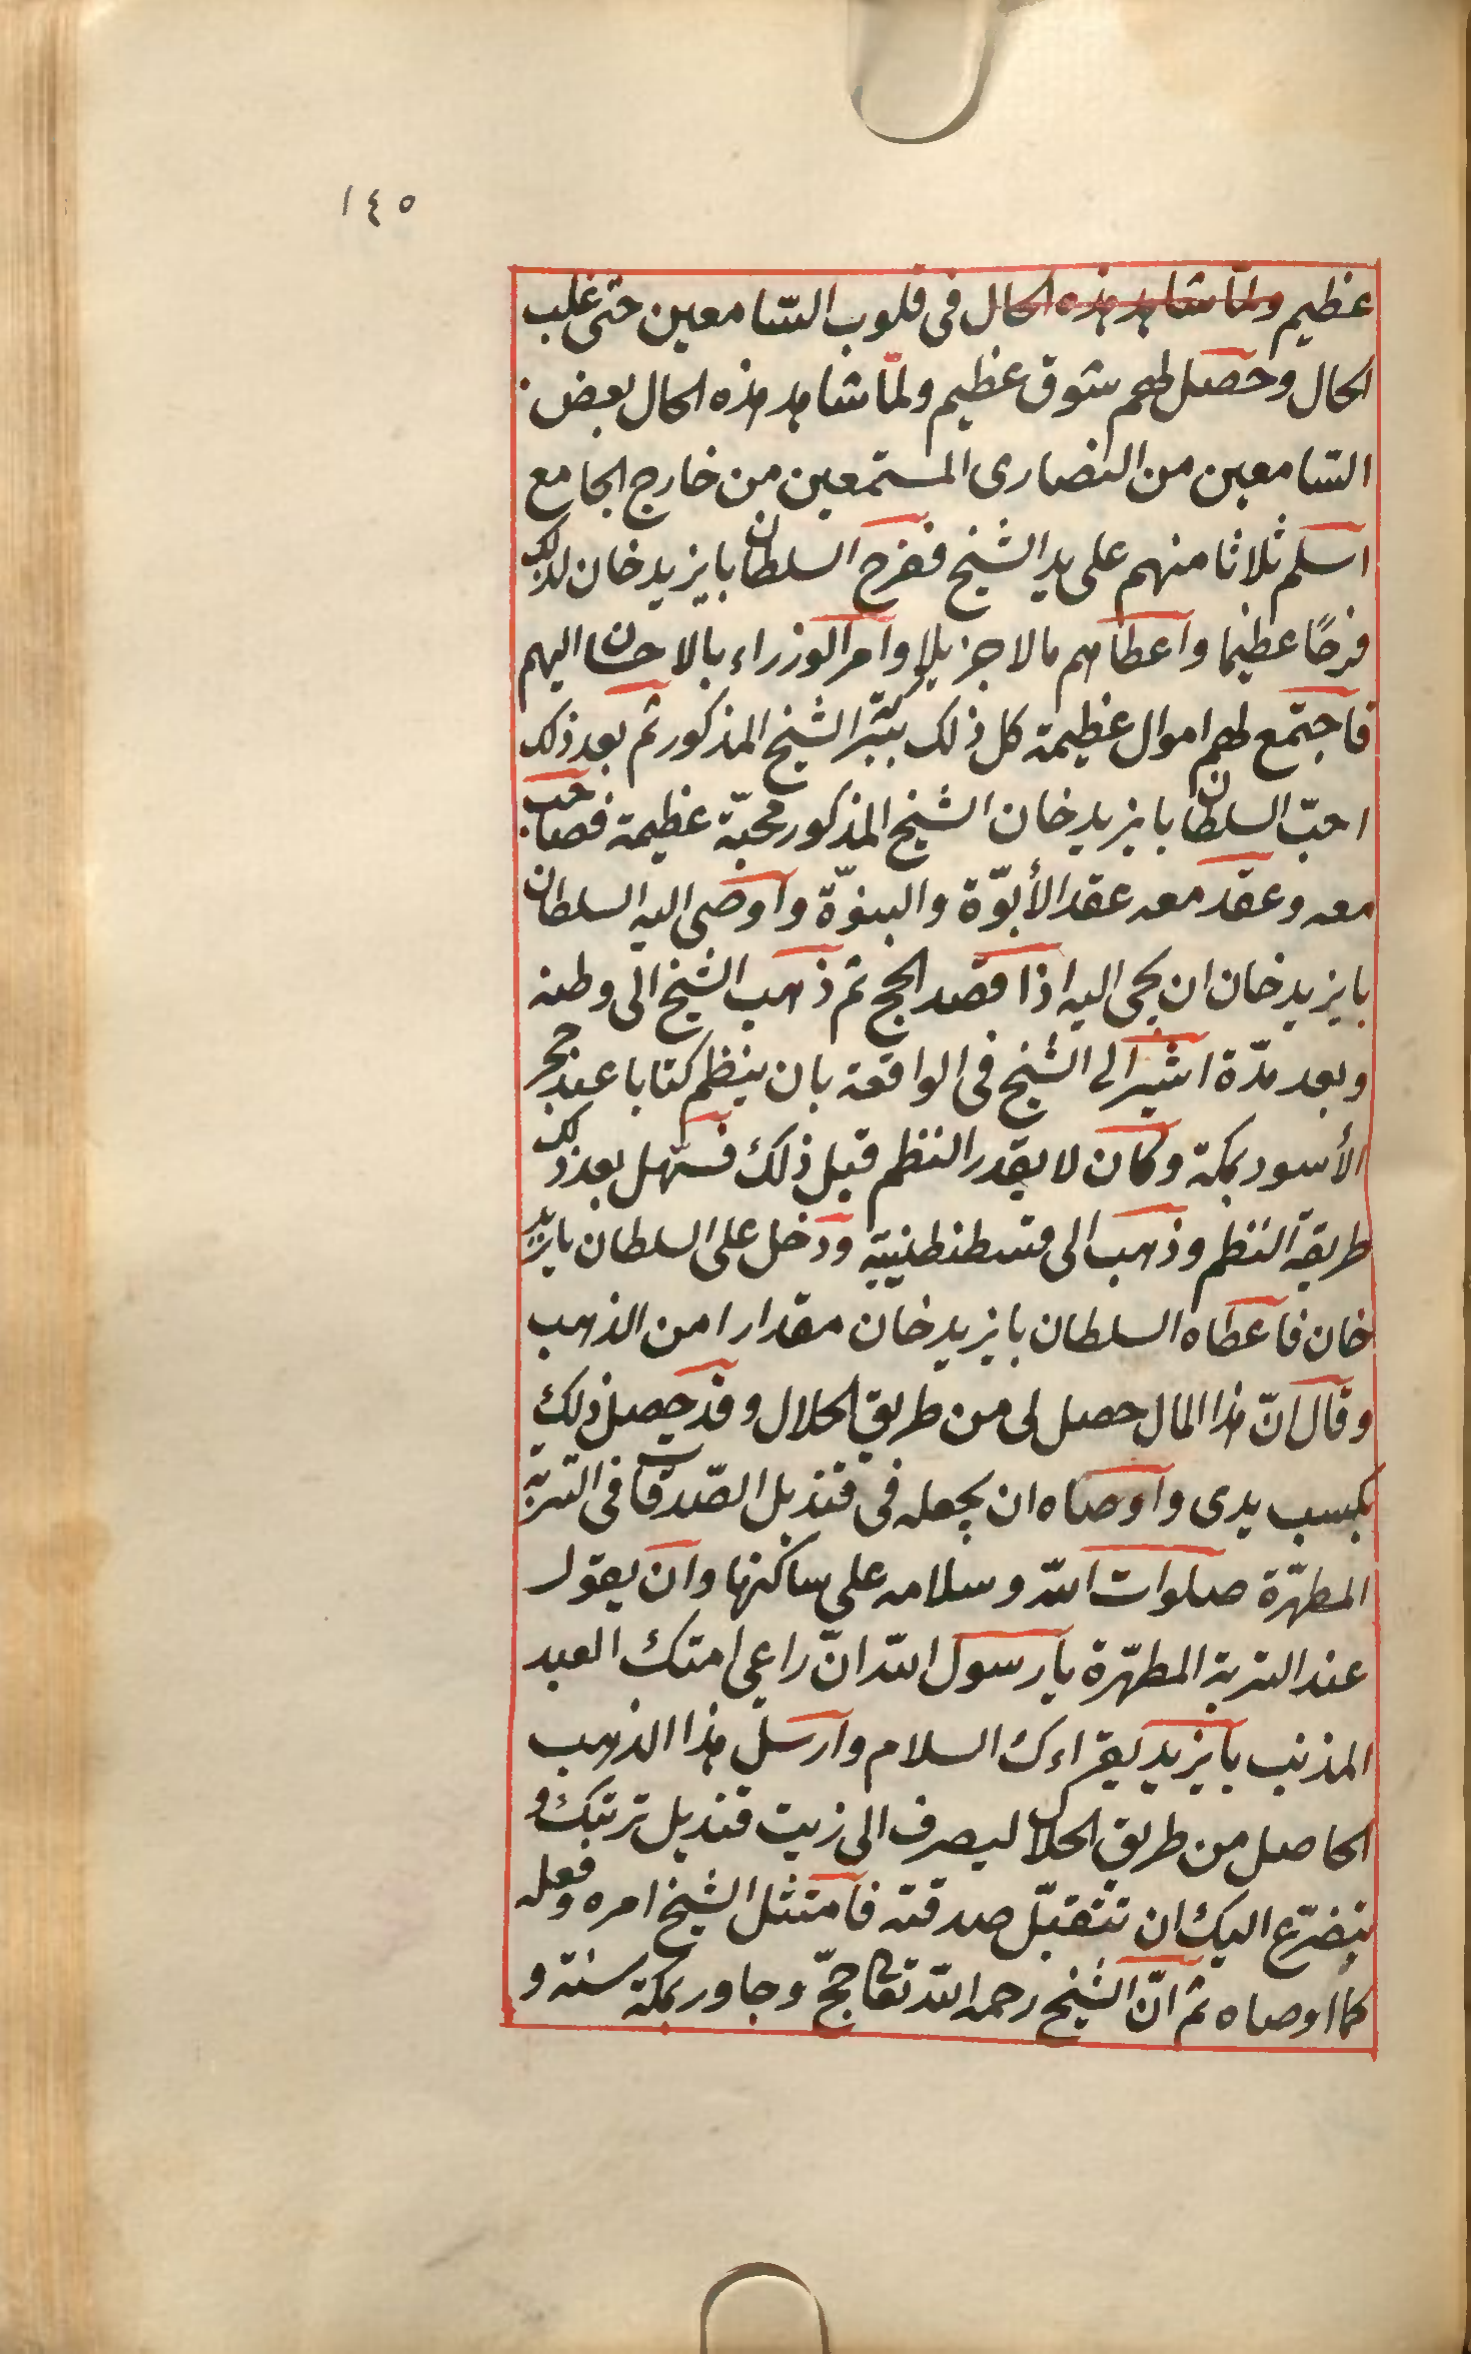 ١٤٥
عظيم ولمّا شاهد هذه الحال فى قلوب السّامعين حتى غلب
الحال وحصل لهم شوق عظيم ولمّا شاهد هذه الحال بعض
السّامعين من النصارى المستمعين من خارج الجامع
اسلم ثلاثا منهم على يد الشيخ ففرح السلطان بايزيد خان لذلك
فرحًا عظيما واعطاهم مالا جزيلا وامر الوزراء بالاحسان اليهم
فاجتمع لهم اموال عظيمة كل ذلك بتبشر الشيخ المذكور ثم بعد ذلك
احبّ السلطان بايزيد خان الشيخ المذكور محبّة عظيمة فصاحب
معه وعقد معه عقد الأبوّة والبنوّة واوصى اليه السلطان
بايزيد خان ان يجى اليه اذا قصد الحج ثم ذهب الشيخ الى وطنه
وبعد مدّة اشير الى الشيخ فى الواقعة بان ينظم كتابا عند حجر
الأسود بمكة وكان لا يقدر النظم قبل ذلك فسهل بعد ذلك
طريقة النظم وذهب الى قسطنطنيية ودخل على السلطان بايزيد
خان فاعطاه السلطان بايزيد خان مقدارا من الذهب
وقال انّ هذا المال حصل لى من طريق الحلال وقد حصل ذلك
بكسب يدى واوصاه ان يجعله فى قنديل الصّدقات فى التربة
المطهّرة صلوات الله وسلامه على ساكنها وان يقول
عند التربة المطهّرة يا رسول الله انّ راعى امتك العبد
المذنب بايزيد يقراءك السلام وارسل هذا الذهب
الحاصل من طريق الحلال ليصرف الى زيت قنديل تربتك و
يتضرّع اليك ان تتقبّل صدقته فامتثل الشيخ امره وفعله
كما اوصاه ثم انّ الشيخ رحمه الله تعالى حجّ وجاور بمكة سنة و